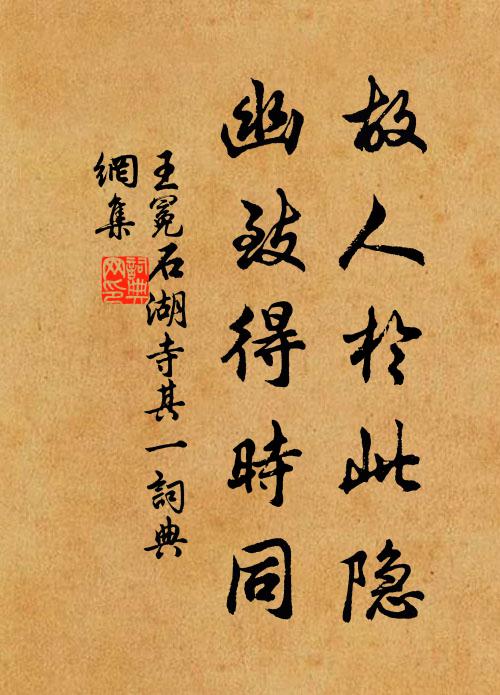 故人於此隐
幽致得時同
王冕石湖寺其一詞典
網集
詞典网印